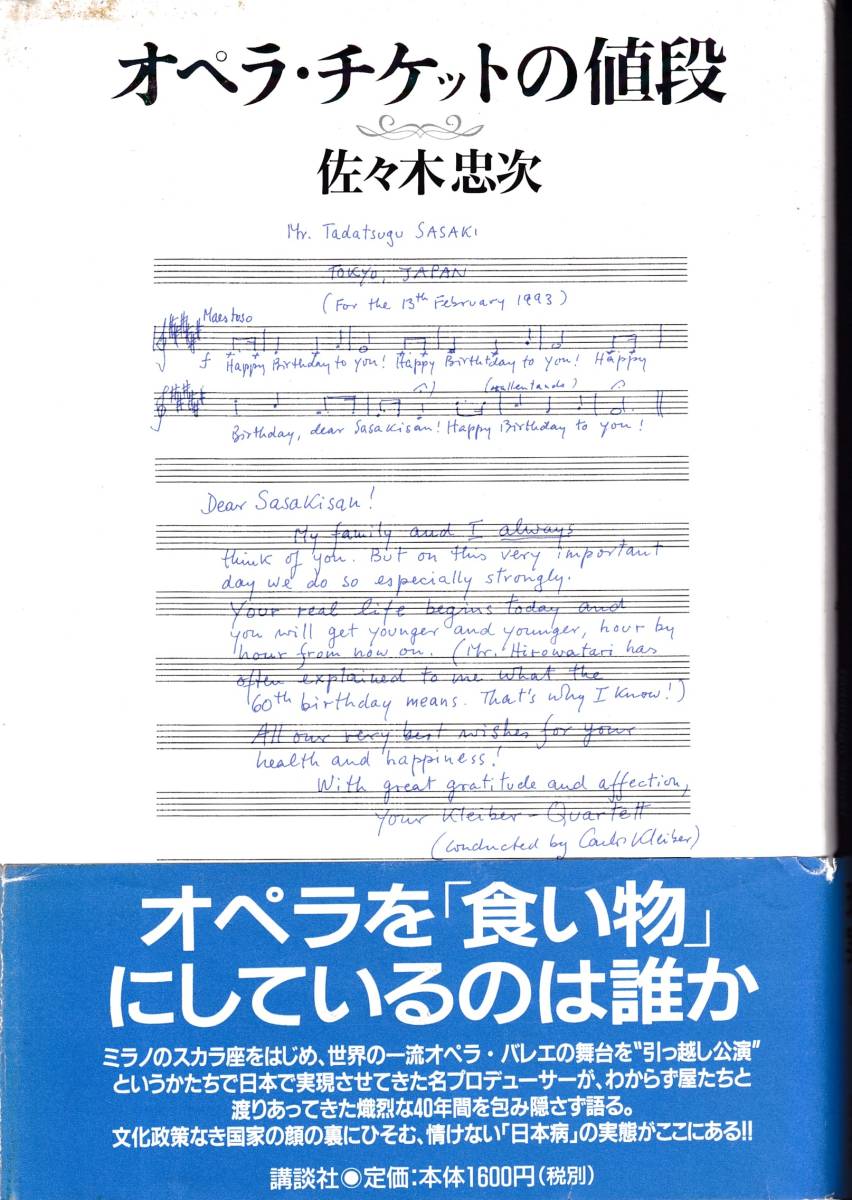 オペラ・チケットの値段
佐々木忠次
Mr. Tadatsugu SASAKI
TOKYO, JAPAN
(For the 13th February 1993)
Maestoso
f Happy Birthday to you! Happy Birthtday to you! Happy
(rallentando)
Birthday, dear Sasakisan! Happy Birthday to you!
Dear Sasakisan!
My family and I always
think of you. But on this very important
day we do so especially strongly.
Your real life begins today and
you will get younger and younger, hour by
hour from now on. (Mr. Hirowatari has
often explained to me what the
60th birthday means. That's why I know!)
All our very best wishes for your
health and happiness!
With great gratitude and affection,
your Kleiber-Quartett
(conducted by Carlos Kleiber)
オペラを「食い物」
にしているのは誰か
ミラノのスカラ座をはじめ、世界の一流オペラ・バレエの舞台を"引っ越し公演"
というかたちで日本で実現させてきた名プロデューサーが、わからず屋たちと
渡りあってきた熾烈な40年間を包み隠さず語る。
文化政策なき国家の顔の裏にひそむ、情けない「日本病」の実態がここにある!!
講談社◉定価:本体1600円(税別)